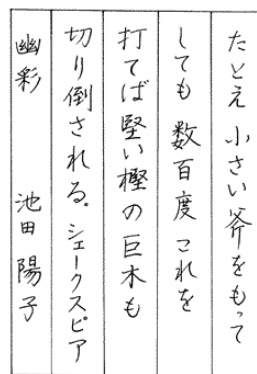 たとえ 小さい斧をもって
しても 数百度これを
打てば堅い樫の巨木も
切り倒される。シェークスピア
幽彩 池田陽子